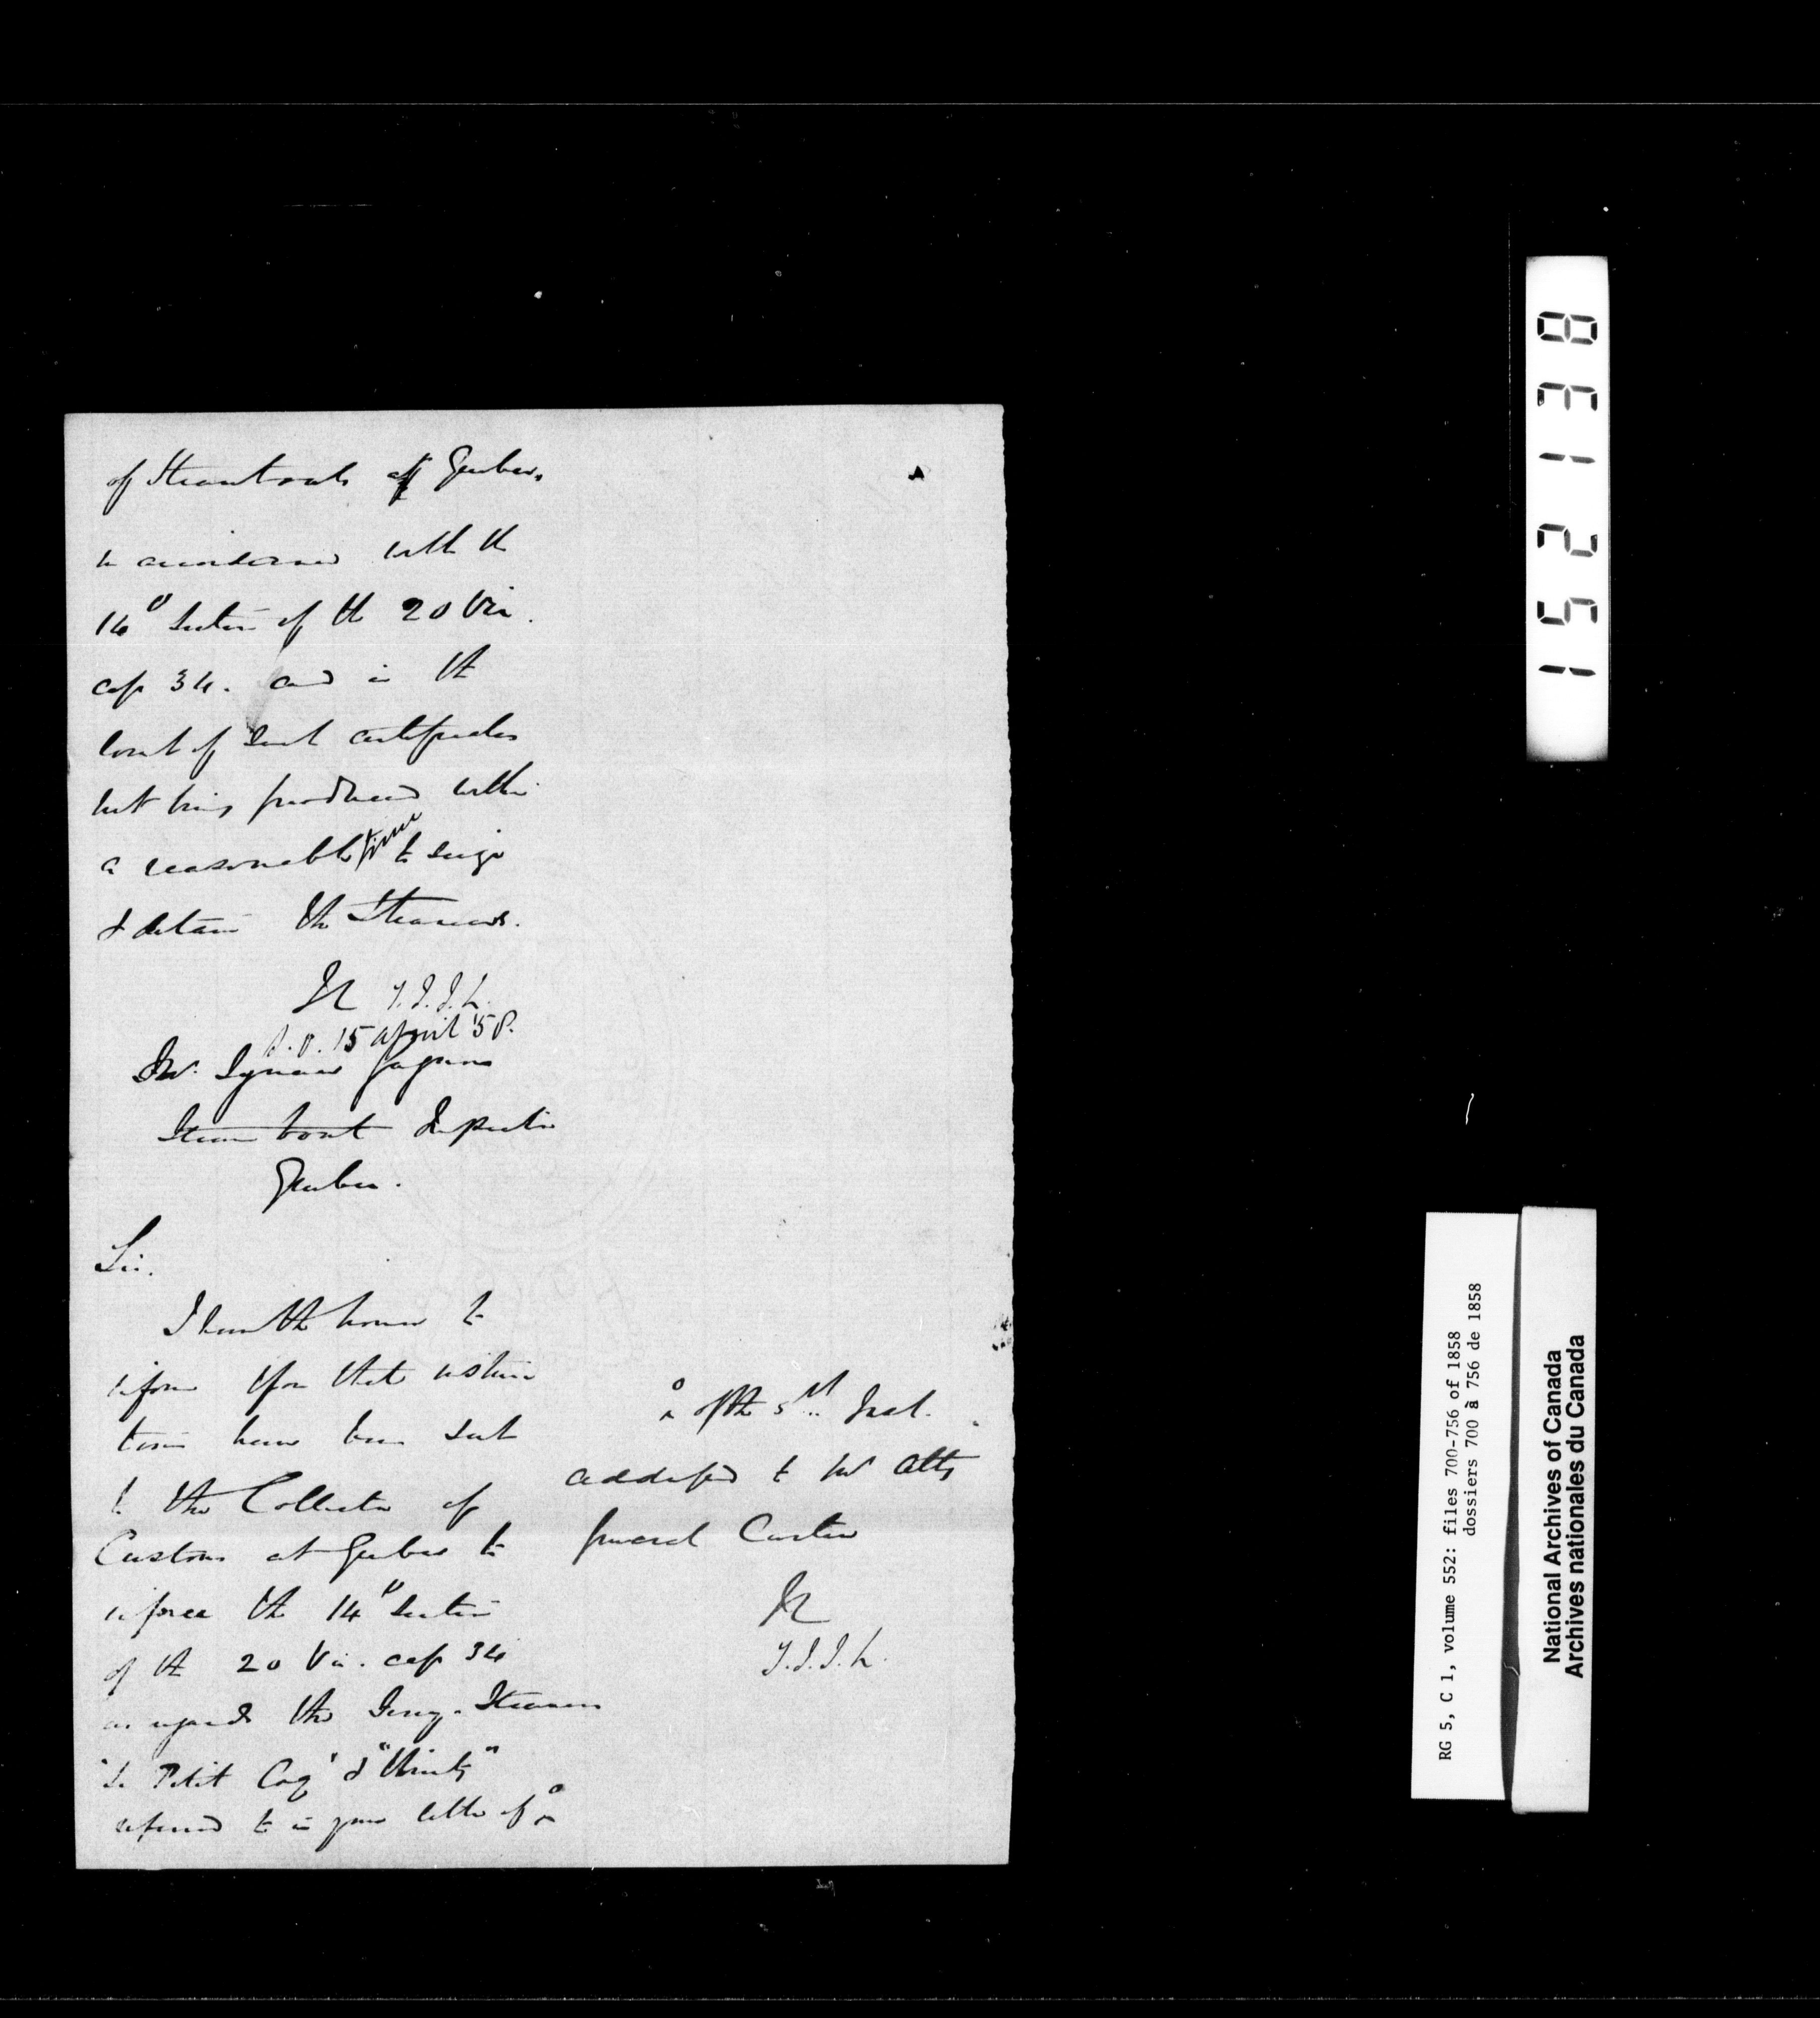 of Steamboats at Quebec,
in accordance with the
14th Section of the 20 Vic.
cap 34. and in the
event of such certificates
not being produced within
a reasonable time to seize
& detain the Steamers.
T.J.J.L.
P.S. 15 April '58.
Mr. Ignace Gagnon
Steam boat Inspector
Quebec.
Sir.
I have the honor to
inform you that instruc
tions have been sent
to the Collector of
Customs at Quebec to
inforce the 14th Section
of the 20 Vic. cap 34
as regards the Ferry-Steamers
"Le Petit Coq" & "Unity"
referred to in your letter of
of the 5th Inst.
addressed to Mr Atty
General Cartier
T.J.J.L.
152138
RG 5, C 1, volume 552: files 700-756 of 1858
dossiers 700 à 756 de 1858
National Archives of Canada
Archives nationales du Canada